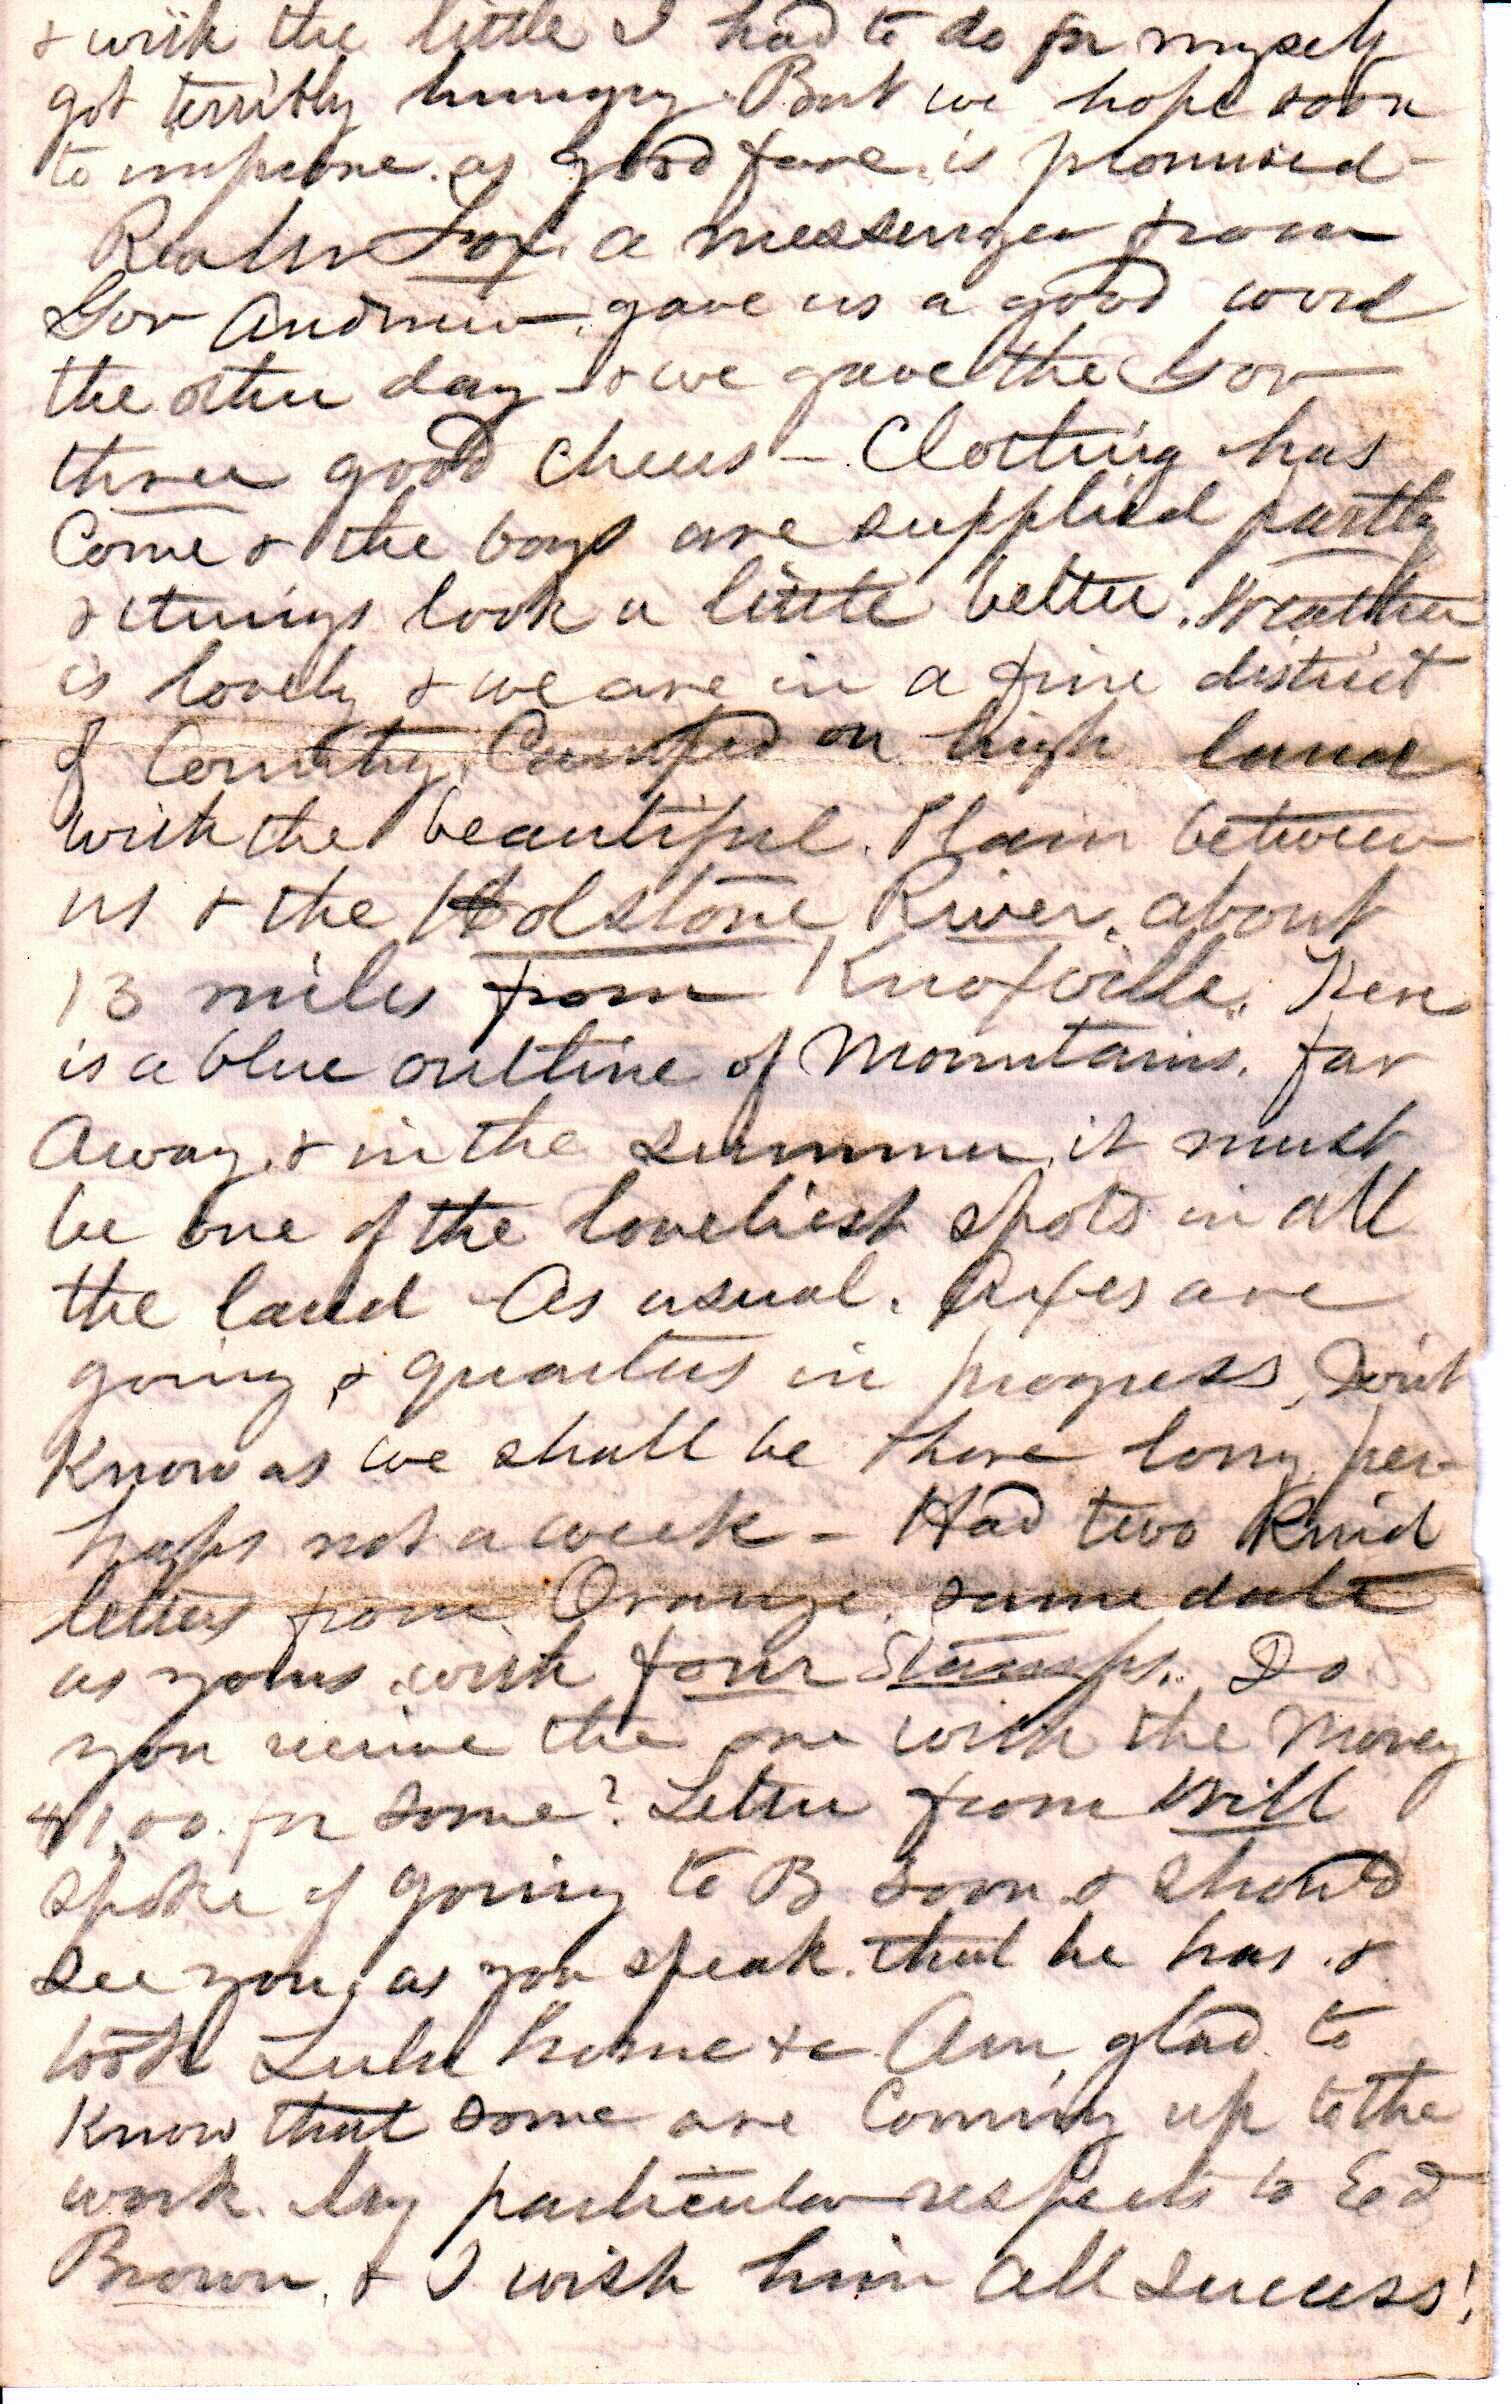 & with the little I had to do for myself
got terribly hungry. But we hope soon
to improve. as good fare. is promised -
Fox. a messenger from
Gov Andrew. gave us a good word
the other day - & we gave the Gov
three good cheers - Clothing has
Come & the boys are supplied partly
& things look a little better. Weather
is lovely & we are in a fine district
of Country. Camped on high land
with the beautiful. Plain between
us & the Holstone River. about
13 miles from Knoxville. There
is a blue outline of Mountains. far
Away. & in the summer. it must
be one of the loveliest spots in all
the land - As usual. Axes are
going, & quarters in progress, Don't
Know as we shall be there long, per-
haps not a week - Had two Kind
letters from Orange. same date
as yours. with four Stamps. Do
you receive the one with the Money
$1,00. for some? Letter from Will
spoke of going to B soon & should
see you, as you speak. that he has. &
took Lulu home &c. Am glad. to
Know that some are Coming up to the
work. My particular respects to Ed
Brown. & I wish him all success!